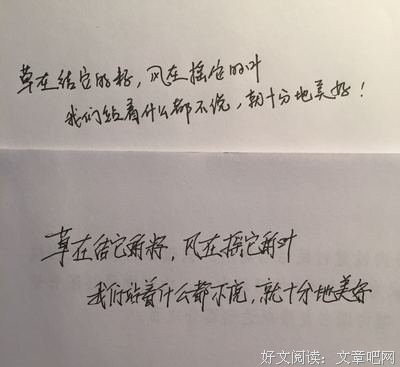 草在结它的籽，风在摇它的叶
我们站着什么都不说，朝十分地美好！
草在结它的籽，风在摇它的叶
我们站着什么都不说，就十分地美好
好文阅读：文章吧网